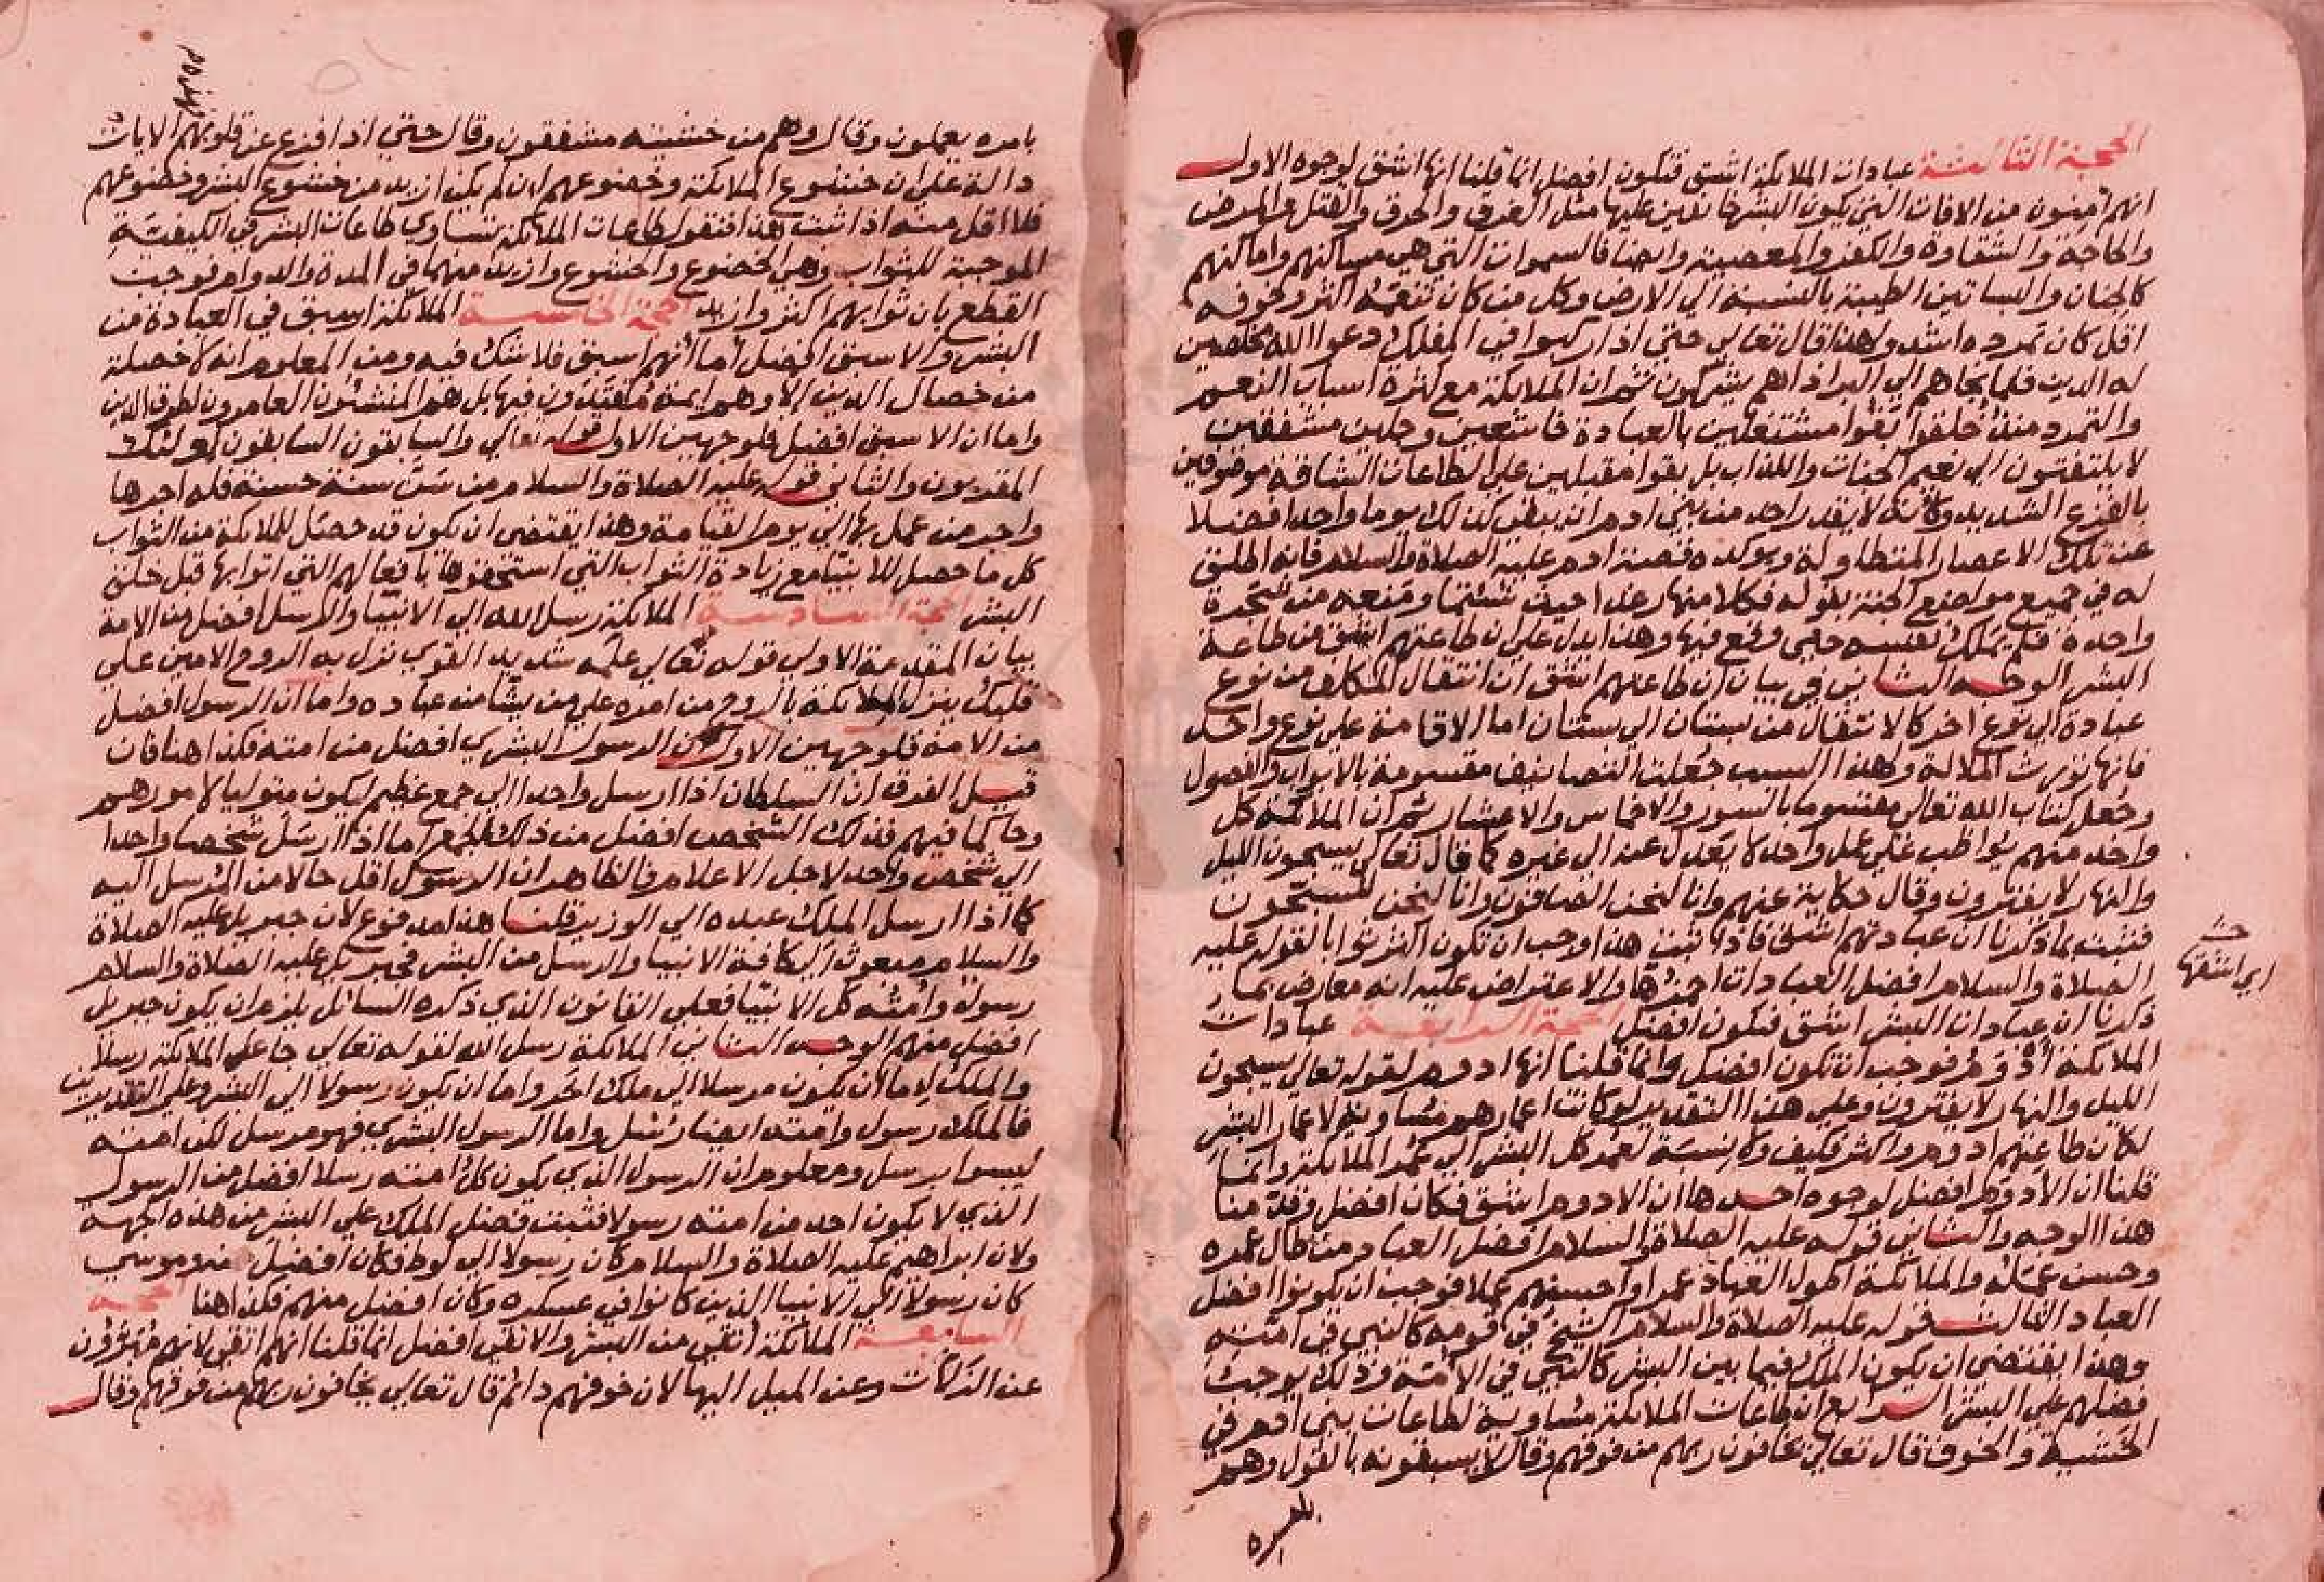 الحجة الثالثة عبادات الملائكة اشق فتكون افضل انما قلنا انها اشق لوجوه الاول
انهم آمنون من الافات التي يكون البشر خائفين عليها مثل الغرق والحرق والقتل والمرض
والحاجة والشقاوة والكفر والمعصية وايضا فالسموات التي هي مساكنهم واماكنهم
كالجنان والبساتين الطيبة بالنسبة الي الارض وكل من كان تنعمه اكثر وخوفه
اقل كان تمرده اشد ولهذا قال تعالي حتي اذا ركبوا في الفلك دعوا الله مخلصين
له الدين فلما نجاهم الي البر اذا هم يشركون ثم ان الملائكة مع كثرة اسباب التنعم
والتمرد منذ خلقوا بقوا مشتغلين بالعبادة خاشعين وجلين مشفقين
لا يلتفتون الي نعيم الجنات واللذات بل بقوا مقبلين علي الطاعات الشاقة موصوفين
بالفزع الشديد وكانه لا يقدر احد من بني ادم ان يبقي كذلك يوما واحدا فضلا
عن تلك الاعصار المتطاولة ويوكده قصة ادم عليه الصلاة والسلام فانه اطلق
له في جميع مواضع الجنة بقوله فكلا منها رغدا حيث شئتما ومنعه من شجرة
واحدة فلم يملك نفسه حتي وقع فيها وهذا يدل علي ان طاعتهم اشق من طاعة
البشر الوجه الثاني في بيان ان طاعتهم اشق ان انتقال المكلف من نوع
عبادة الي نوع اخر كالانتقال من بستان الي بستان اما الاقامة علي نوع واحد
فانها تورث الملالة ولهذا السبب جعلت التصانيف مقسومة بالابواب والفصول
وجعل كتاب الله تعالي مقسوما بالسور والاخماس والاعشار ثم ان الملائكة كل
واحد منهم يواظب علي عمل واحد لا يعدل عنه الي غيره كما قال تعالي يسبحون الليل
والنهار لا يفترون وقال حكاية عنهم وانا لنحن الصافون وانا لنحن المسبحون
فثبت بما ذكرنا ان عبادتهم اشق فاذا ثبت هذا وجب ان تكون اكثر ثوابا لقوله عليه
الصلاة والسلام افضل العبادات احمزها والاعتراض عليه انه معارض بما
اي اشقها
ذكرنا ان عبادات البشر اشق فتكون افضل الحجة الرابعة عبادات
الملائكة ادوم فوجب ان تكون افضل وانما قلنا انها ادوم لقوله تعالي يسبحون
الليل والنهار لا يفترون وعلي هذا التقدير لو كانت اعمارهم مساوية لاعمار البشر
لكان طاعتهم ادوم واكثر فكيف ولا نسبة لعمر كل البشر الي عمر الملائكة وانما
قلنا ان الادوم افضل لوجوه احدها ان الادوم اشق فكان افضل وقد منا
هذا الوجه والثاني قوله عليه الصلاة والسلام افضل العباد من طال عمره
وحسن عمله والملائكة اطول العباد عمرا واحسنهم عملا فوجب ان يكونوا افضل
العباد الثالث قوله عليه الصلاة والسلام الشيخ في قومه كالنبي في امته
وهذا يقتضي ان يكون الملك فيما بين البشر كالنبي في الامة وذلك يوجب
فضلهم علي البشر الرابع ان طاعات الملائكة مساوية لطاعات بني ادم في
الخشية والخوف قال تعالي يخافون ربهم من فوقهم وقال لا يسبقونه بالقول وهم
بامره
بامره يعملون وقال وهم من خشيته مشفقون وقال حتي اذا فزع عن قلوبهم الايات
دالة علي ان خشوع الملائكة وخضوعهم ان لم يكن ازيد من خشوع البشر وخضوعهم
فلا اقل منه اذا ثبت هذا فنقول طاعات الملائكة تساوي طاعات البشر في الكيفية
الموجبة للثواب وهي الخضوع والخشوع وازيد منهما في المدة والدوام فوجب
القطع بان ثوابهم اكثر وازيد الحجة الخامسة الملائكة اسبق في العبادة من
البشر والاسبق افضل اما انهم اسبق فلا شك فيه ومن المعلوم انه لا خصلة
من خصال الدين الا وهم ايمة متقيدون فيها بل هم المنشئون العامرون لطرق الدين
واما ان الاسبق افضل فلوجهين الاول قوله تعالي والسابقون السابقون اولئك
المقربون والثاني قوله عليه الصلاة والسلام من سن سنة حسنة فله اجرها
واجر من عمل بها الي يوم القيامة وهذا يقتضي ان يكون قد حصل للملائكة من الثواب
كل ما حصل للانبيا مع زيادة الثواب التي استحقوها بافعالهم التي اتوا بها قبل خلق
البشر الحجة السادسة الملائكة رسل الله الي الانبيا والرسل افضل من الامة
بيان المقدمة الاولي قوله تعالي علمه شديد القوي نزل به الروح الامين علي
قلبك ينزل الملائكة بالروح من امره علي من يشا من عباده واما ان الرسول افضل
من الامة فلوجهين الاول ان الرسول البشري افضل من امته فكذا هنا فان
قيل الفرق ان السلطان اذا ارسل واحدا الي جمع عظيم ليكون متوليا لامورهم
وحاكما فيهم فذلك الشخص افضل من ذلك الجمع اما اذا ارسل شخصا واحدا
الي شخص واحد لاجل الاعلام فالظاهر ان الرسول اقل حالا من المرسل اليه
كما اذا ارسل الملك عبده الي الوزير قلنا هذا مدفوع لان جبريل عليه الصلاة
والسلام مبعوث الي كافة الانبيا والرسل من البشر فجبريل عليه الصلاة والسلام
رسول وامته كل الانبيا فعلي القانون الذي ذكره السائل يلزم ان يكون جبريل
افضل منهم الوجه الثاني ان الملائكة رسل الله لقوله تعالي جاعل الملائكة رسلا
والملك اما ان يكون مرسلا الي ملك اخر واما ان يكون رسولا الي البشر وعلي التقديرين
فالملك رسول وامته ايضا رسل واما الرسول البشري فهو مرسل لكن امته
ليسوا برسل ومعلوم ان الرسول الذي يكون كل امته رسلا افضل من الرسول
الذي لا يكون احد من امته رسولا فثبت فضل الملك علي البشر من هذه الجهة
ولان ابراهيم عليه الصلاة والسلام كان رسولا الي لوط فكان افضل منه وموسي
كان رسولا الي الانبيا الذين كانوا في عسكره وكان افضل منهم فكذا هنا الحجة
السابعة الملائكة اتقي من البشر والاتقي افضل انما قلنا انهم اتقي لانهم مبرؤون
عن الزلات وعن الميل اليها لان خوفهم دائم قال تعالي يخافون ربهم من فوقهم وقال